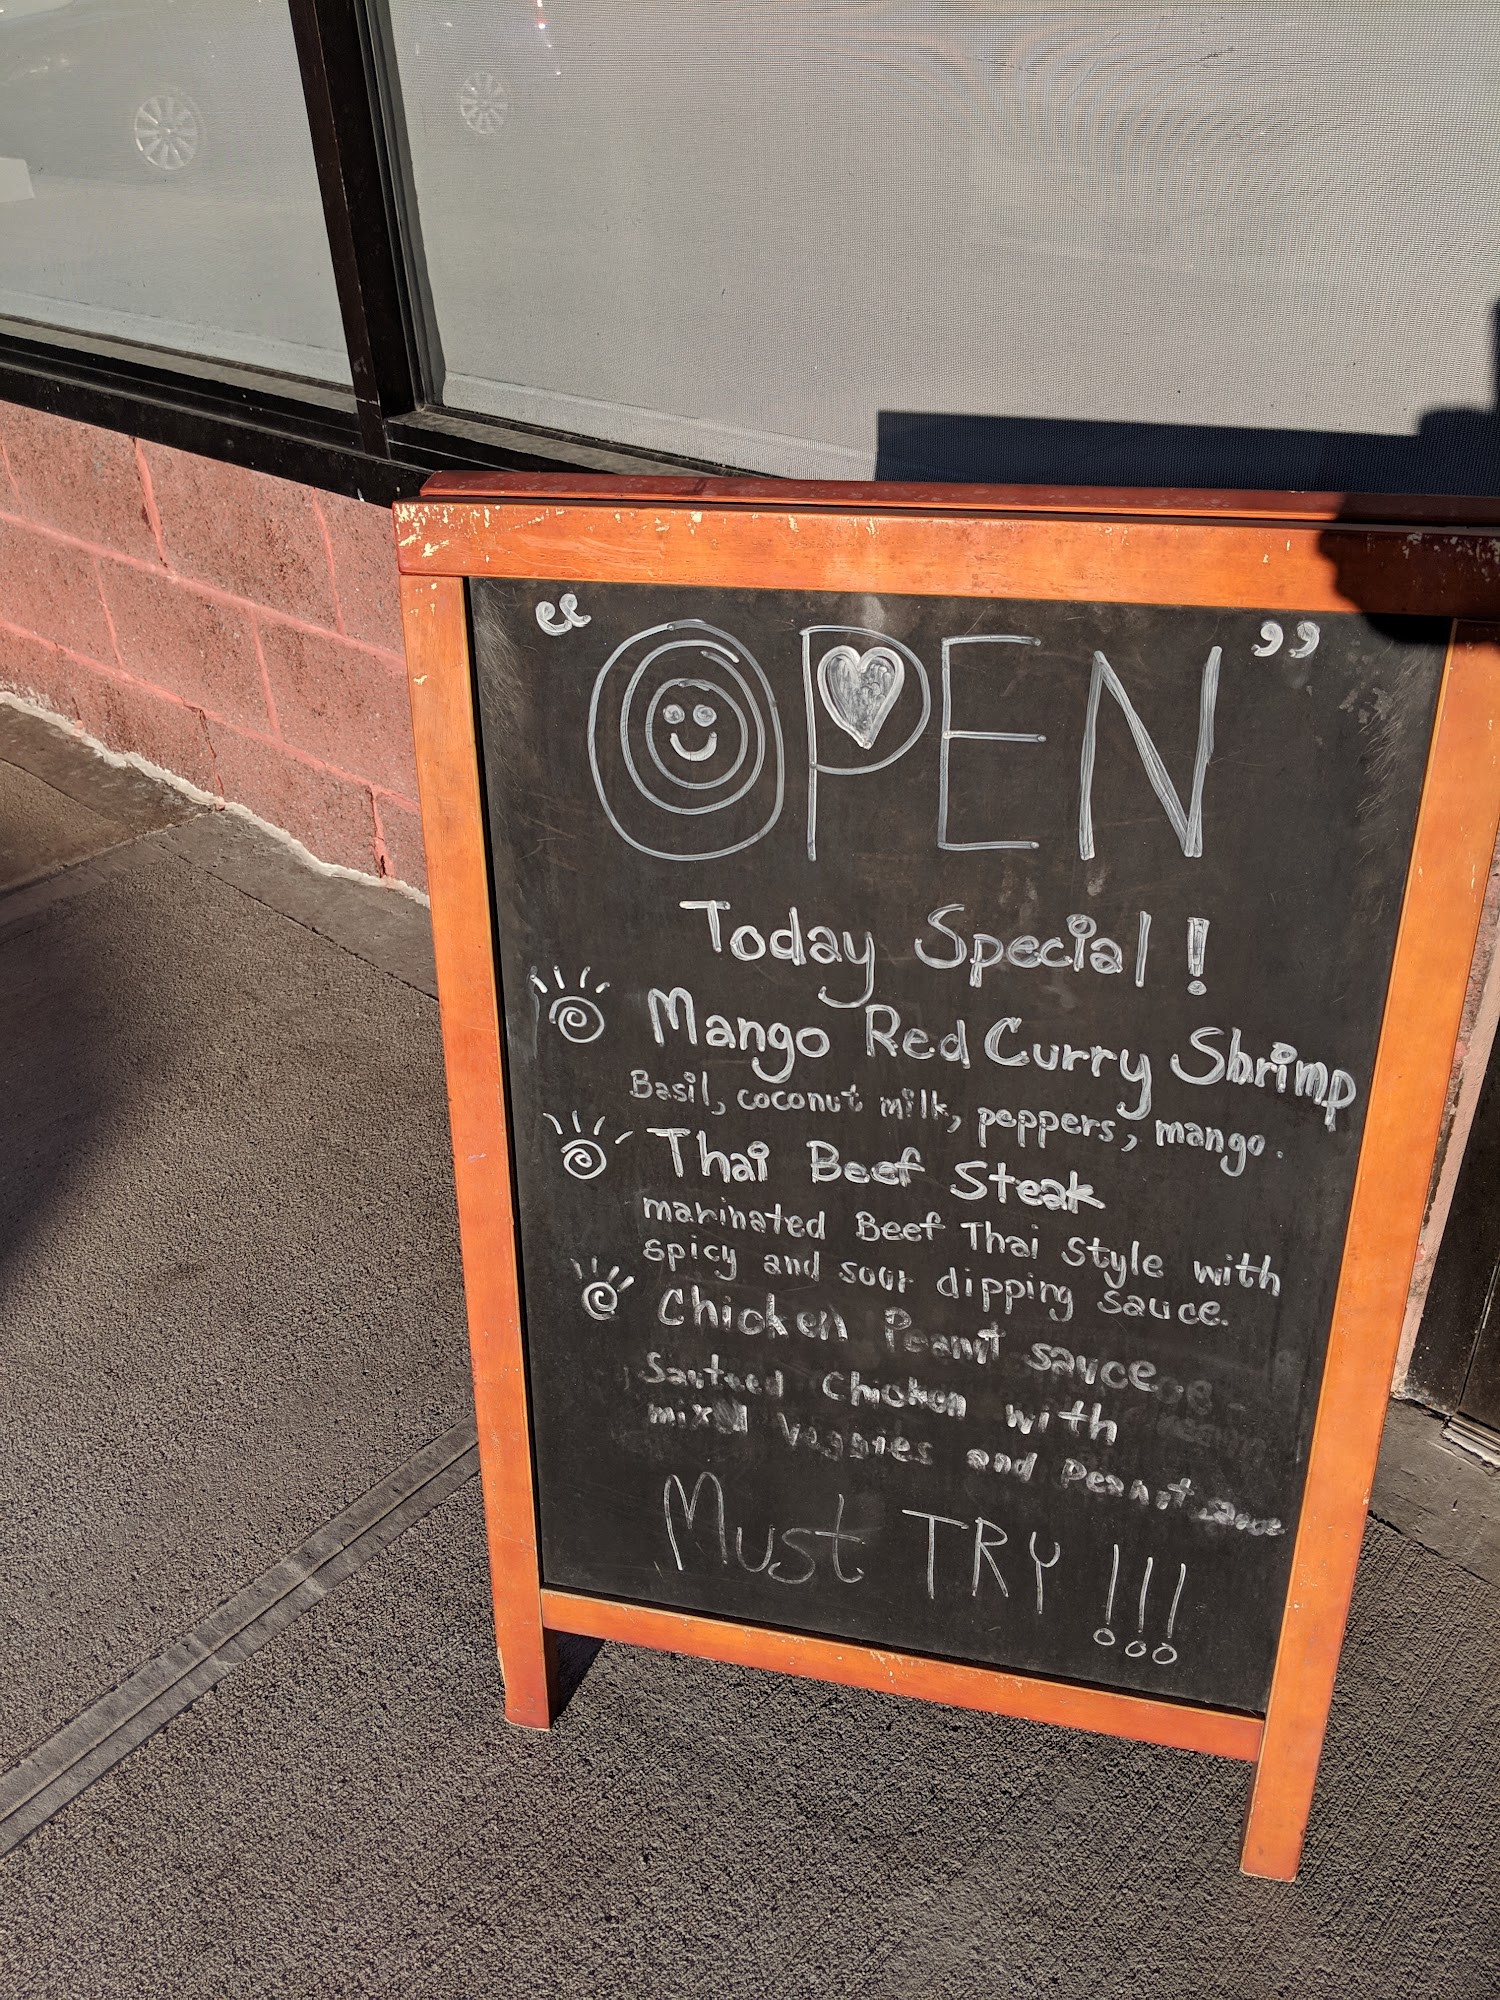 “OPEN”
Today Special!
Mango Red Curry Shrimp
Basil, coconut milk, peppers, mango.
Thai Beef Steak
marinated Beef Thai Style with
spicy and sour dipping sauce.
Chicken Peanut sauce
Sauteed Chicken with
mixed Veggies and Peanut sauce
Must TRY !!!